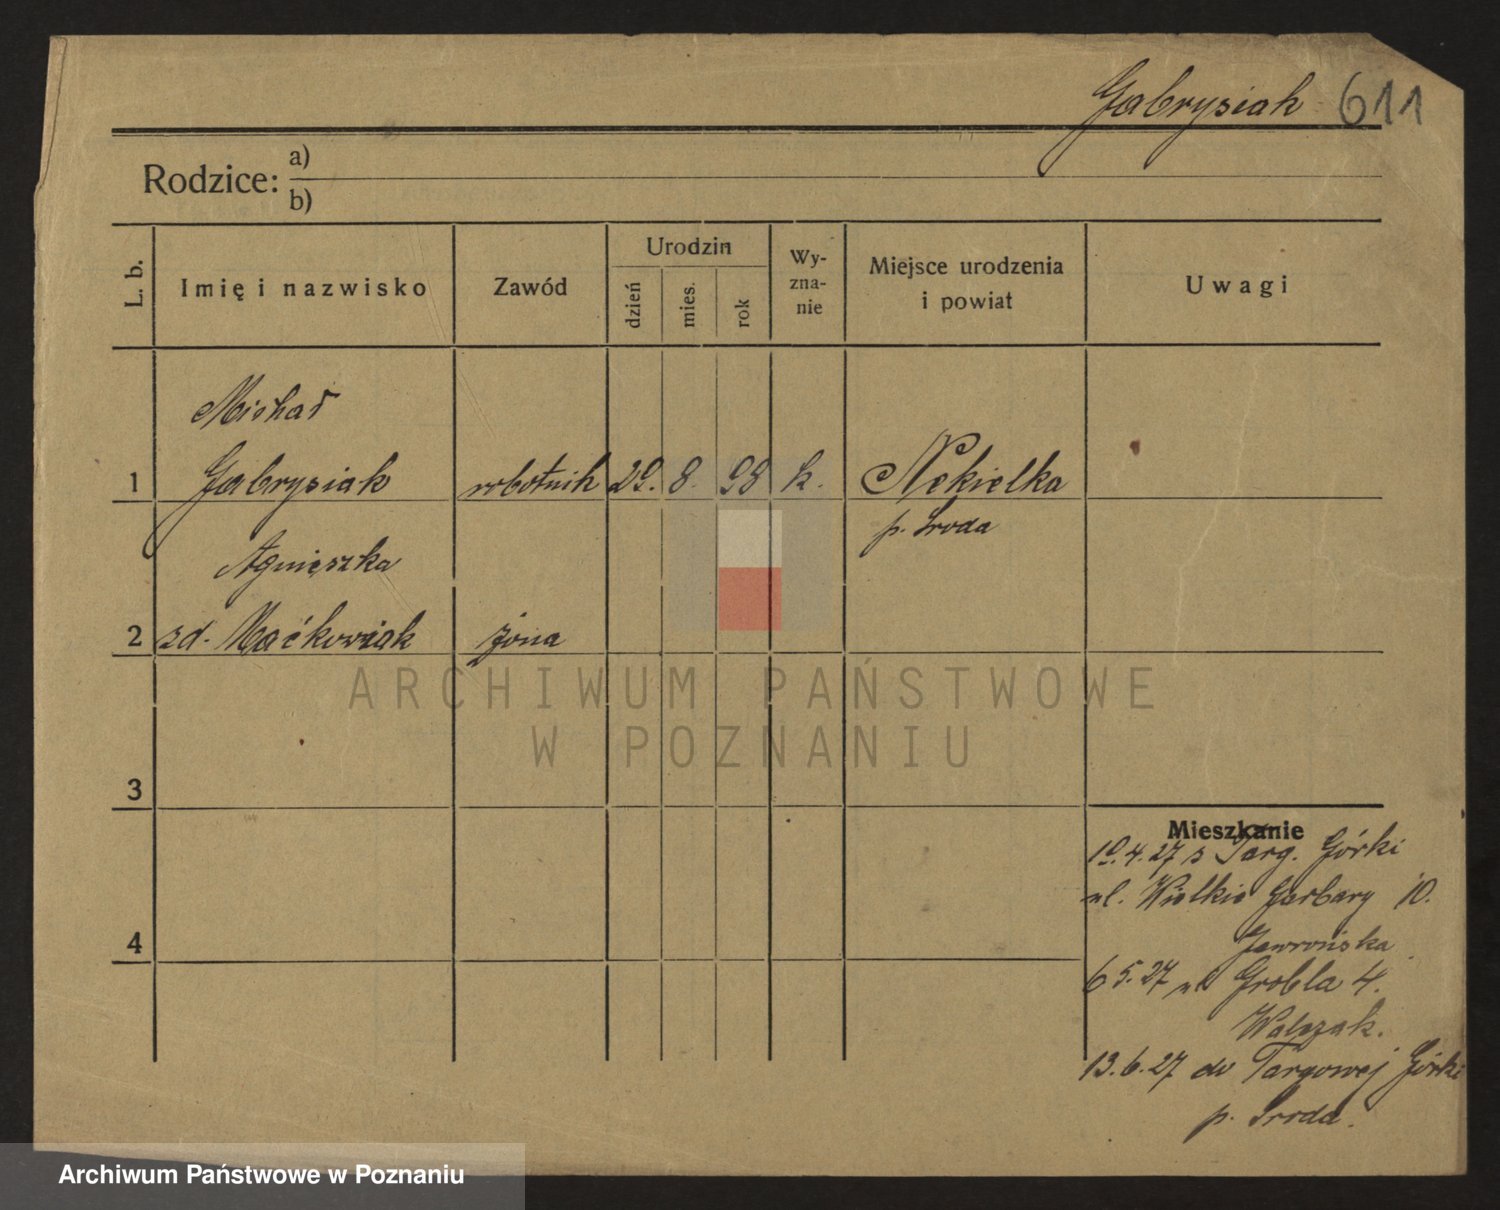 Gabrysiak 611
Rodzice: a)
b)
L. b.
Imię i nazwisko
Zawód
Urodzin
dzień
mies.
rok
Wy-
zna-
nie
Miejsce urodzenia
i powiat
Uwagi
Michał
1 Gabrysiak robotnik 29. 8. 98 k. Nekielka
p. Środa
Agnieszka
2 zd. Maćkowiak żona
ARCHIWUM PAŃSTWOWE
W POZNANIU
3
Mieszkanie
19.4.27 z Targ. Górki
ul. Wielkie Garbary 10.
Gawrońska
4
6 5.27 ul Grobla 4.
Walczak.
13.6.27 do Targowej Górki
p. Środa.
Archiwum Państwowe w Poznaniu